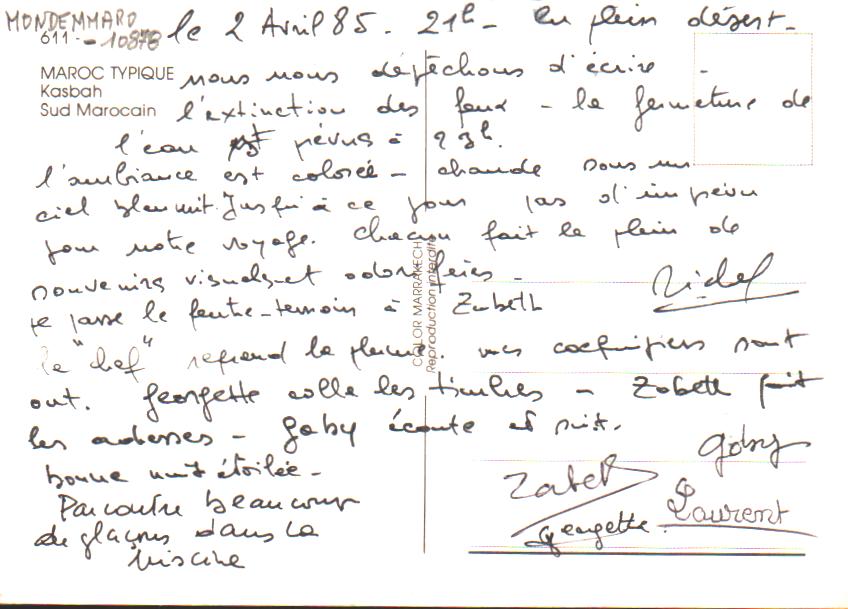 MONDEMMARD
611 - 10878 le 2 Avril 85 - 21h - En plein désert -
MAROC TYPIQUE
Kasbah
Sud Marocain
nous nous dépêchons d'écrire -
l'extinction des feux - la fermeture de
l'eau est prévus à 23h.
l'ambiance est colorée - chaude sous un
ciel bleu nuit. Jusqu'à ce jour pas d'imprévu
pour notre voyage. Chacun fait le plein de
souvenirs visuels et odoriférés -
je passe le feutre-temoin à Zabeth
Michel
le "chef" reprend la plume. mes coéquipiers sont
out. Georgette colle les timbres - Zabeth fait
les adresses - Gaby écoute et suit.
bonne nuit étoilée -
Par contre beaucoup
de glaçons dans la
piscine
Gaby
Zabeth
Laurent
Georgette
COLOR MARRAKECH
Reproduction interdite